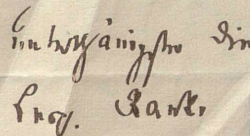 unterthänigster Die
Leop. Ranke